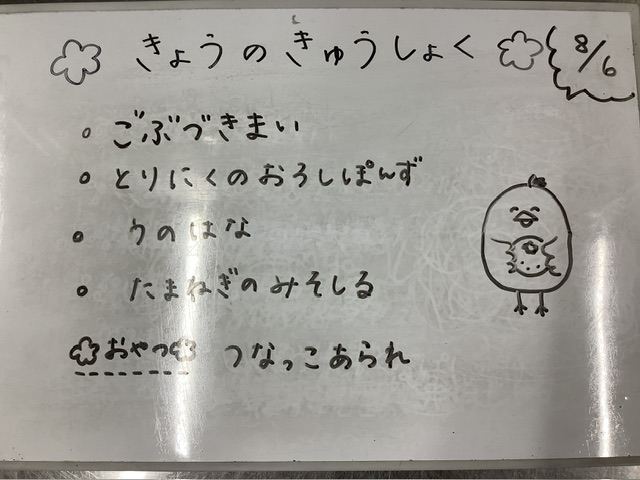 きょうのきゅうしょく 8/6
ごぶづきまい
とりにくのおろしぽんず
うのはな
たまねぎのみそしる
おやつ つなっこあられ